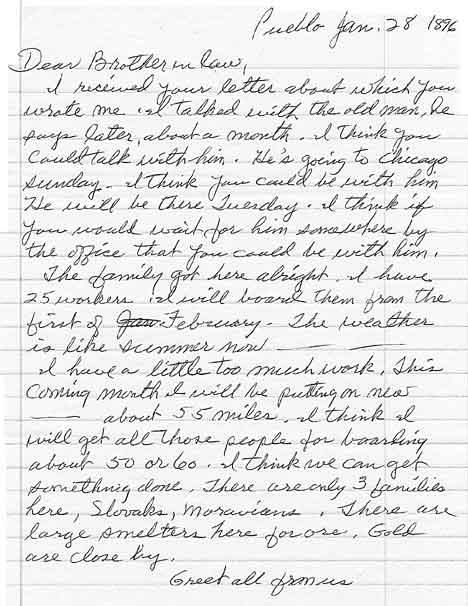 Pueblo Jan. 28 1896
Dear Brother in law,
I received your letter about which you
wrote me. I talked with the old man, he
says later, about a month. I think you
could talk with him. He's going to Chicago
Sunday. I think you could be with him
He will be there Tuesday. I think if
you would wait for him somewhere by
the office that you could be with him.
The family got here alright. I have
25 workers. I will board them from the
first of Jan. February. The weather
is like summer now ——— ———
I have a little too much work. This
coming month I will be putting on new
——— about 55 miles. I think I
will get all those people for boarding
about 50 or 60. I think we can get
something done. There are only 3 families
here, Slovaks, Moravians. There are
large smelters here for ore. Gold
are close by.
Greet all from us